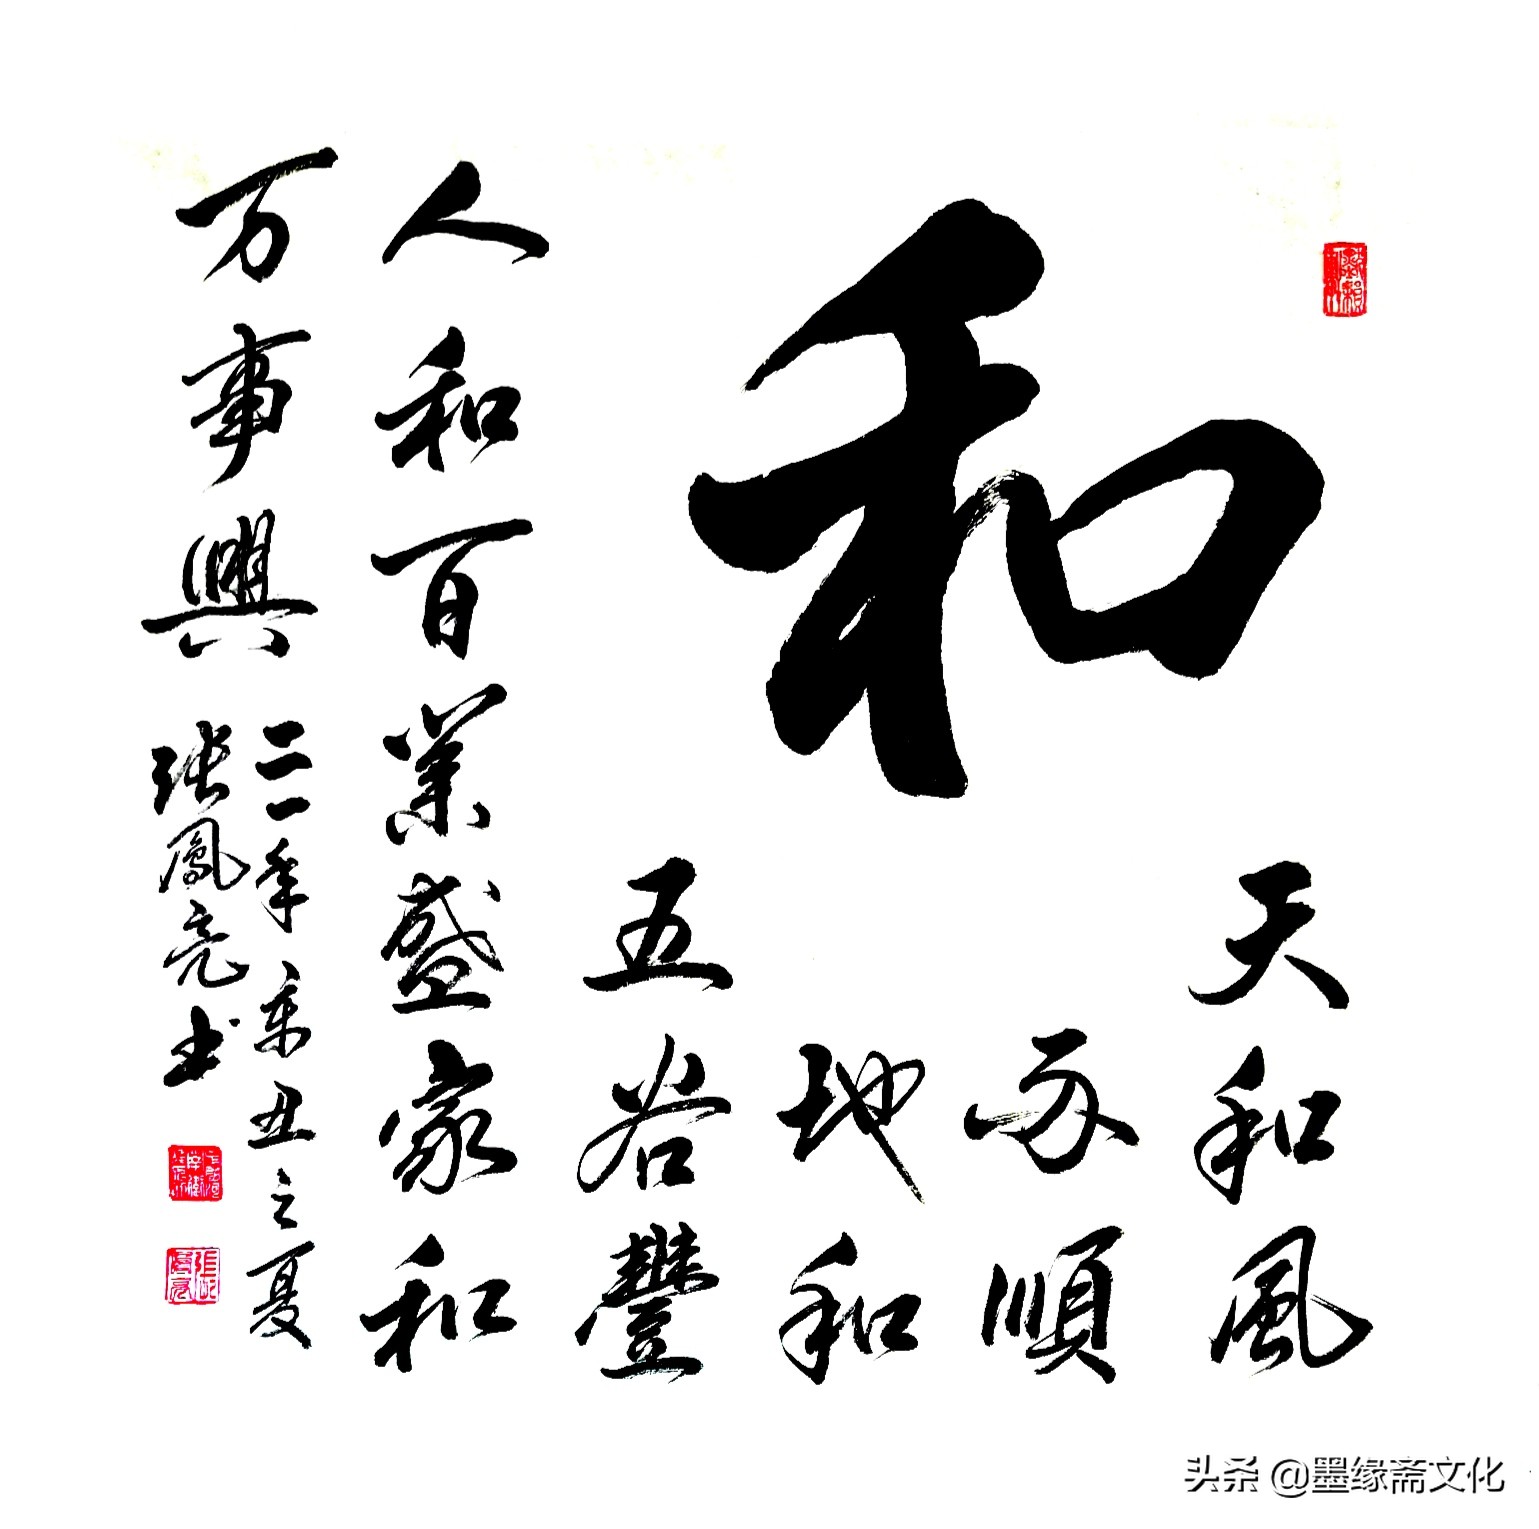 和
天和風
雨順
地和
五谷豐
人和百業盛家和
万事興
二一年辛丑之夏
张鳳亮书
头条 @墨缘斋文化